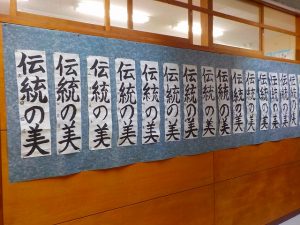 伝統の美
伝統の美
伝統の美
伝統の美
伝統の美
伝統の美
伝統の美
伝統の美
伝統の美
伝統の美
伝統の美
伝統の美
伝統の美